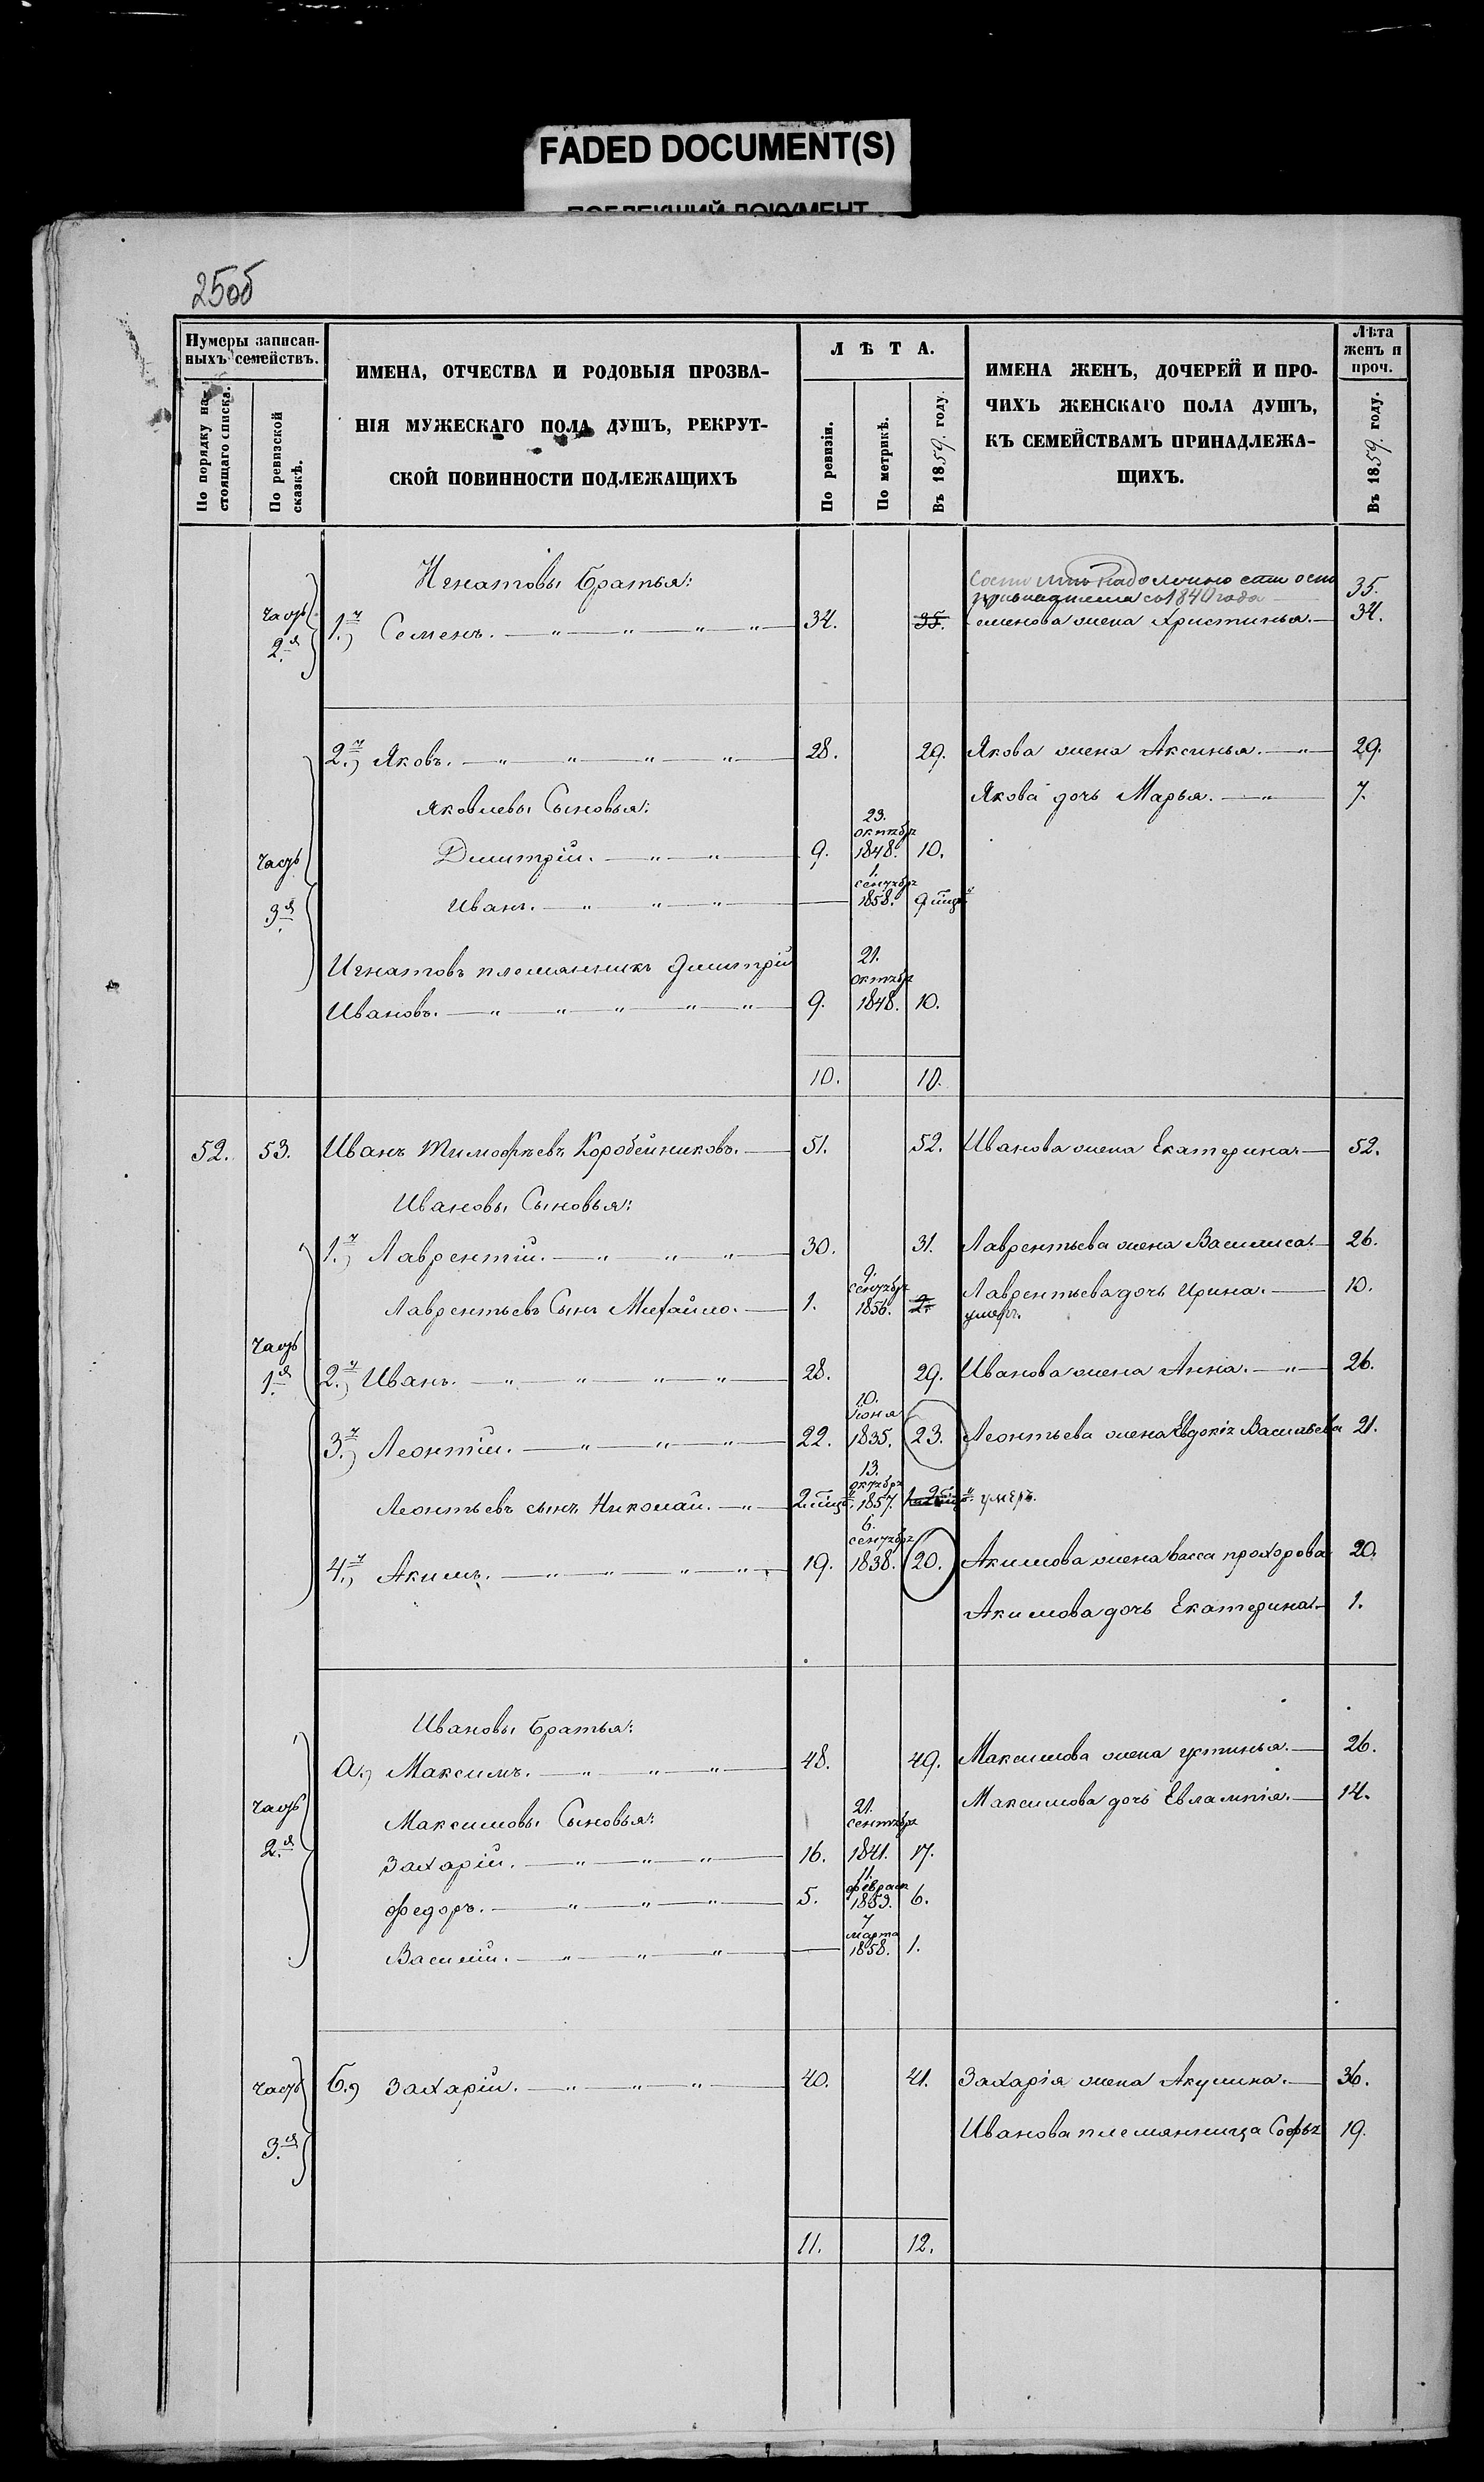 FADED DOCUMENT(S)
ПОБЛЕКШИЙ ДОКУМЕНТ
25об
Нумеры записан-
ныхъ семействъ.
По порядку на-
стоящаго списка.
По ревизской
сказкѣ.
ИМЕНА, ОТЧЕСТВА И РОДОВЫЯ ПРОЗВА-
НІЯ МУЖЕСКАГО ПОЛА ДУШЪ, РЕКРУТ-
СКОЙ ПОВИННОСТИ ПОДЛЕЖАЩИХЪ
ЛѢТА.
По ревизіи.
По метрикѣ.
Въ 1859. году.
ИМЕНА ЖЕНЪ, ДОЧЕРЕЙ И ПРО-
ЧИХЪ ЖЕНСКАГО ПОЛА ДУШЪ,
КЪ СЕМЕЙСТВАМЪ ПРИНАДЛЕЖА-
ЩИХЪ.
Лѣта
женъ и
проч.
Въ 1859. году.
Игнатовы братья:
съ 1840 года 35.
часть 2.я 1.й) Семенъ. 34. 35. Семенова жена Христинья. 34.
2.й) Яковъ. 28. 29. Якова жена Аксинья. 29.
Яковлевы Сыновья: Якова дочь Марья. 7.
Дмитрій. 9. 23. октябр 1848. 10.
часть 3.я
Иванъ. 1. сентябр 1858. 9 мцъ
Игнатовъ племянникъ Дмитрій
Ивановъ. 9. 21. октябр 1848. 10.
10. 10.
52. 53. Иванъ Тимофѣевъ Коробейниковъ. 51. 52. Иванова жена Екатерина. 52.
Ивановы Сыновья:
1.й) Лаврентій. 30. 31. Лаврентьева жена Василиса. 26.
Лаврентьевъ Сынъ Михайло. 1. 9. сентябр 1856. 2. Лаврентьева дочь Ирина. 10.
умеръ.
часть 1.я
2.й) Иванъ. 28. 29. Иванова жена Анна. 26.
3.й) Леонтій. 22. 10. Іюня 1835. 23. Леонтьева жена Евдокія Васильева 21.
Леонтьевъ сынъ Николай. 2 мцъ. 13. октябр 1857. умеръ.
4.й) Акимъ. 19. 6. сентябр 1838. 20. Акимова жена Васса Прохорова 20.
Акимова дочь Екатерина. 1.
Ивановы братья:
а.) Максимъ. 48. 49. Максимова жена Устинья. 26.
Максимовы Сыновья: Максимова дочь Евлампія. 14.
часть 2.я
Захарій. 16. 21. сентябр 1841. 17.
Федоръ. 5. 11. феврал 1853. 6.
Василій. 7 марта 1858. 1.
часть 3.я б.) Захарій. 40. 41. Захарія жена Акулина. 36.
Иванова племянница Софья 19.
11. 12.